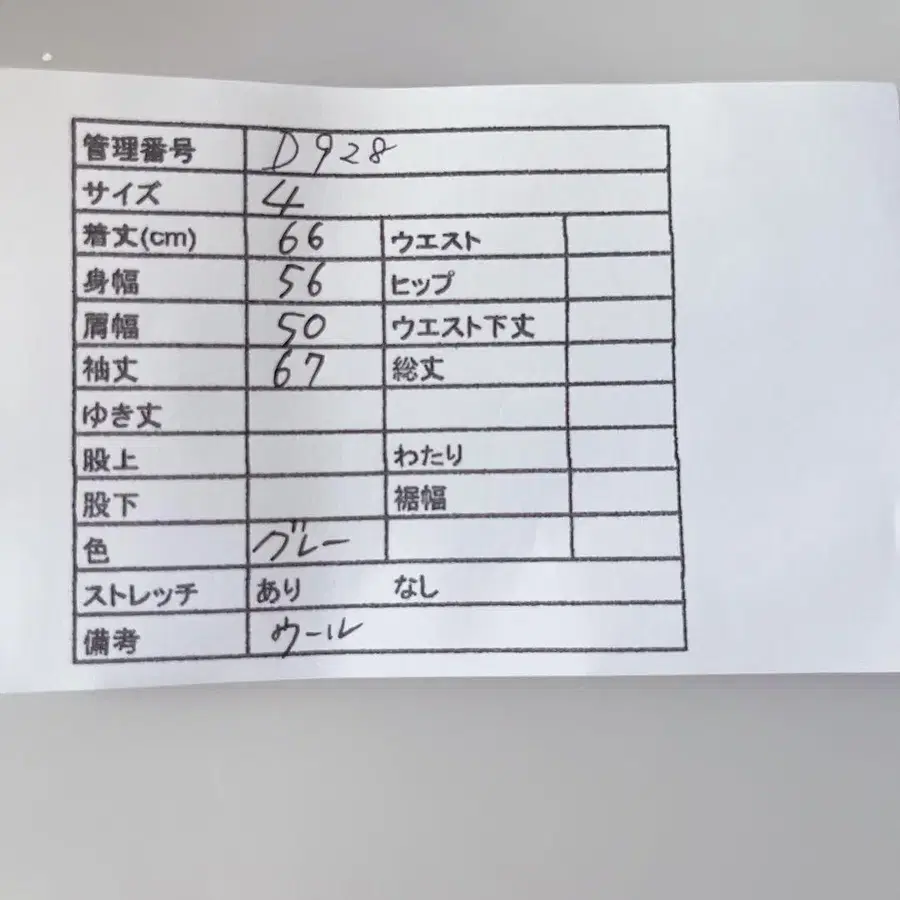 管理番号 D928
サイズ 4
着丈(cm) 66 ウエスト
身幅 56 ヒップ
肩幅 50 ウエスト下丈
袖丈 67 総丈
ゆき丈
股上 わたり
股下 裾幅
色 グレー
ストレッチ あり なし
備考 ウール